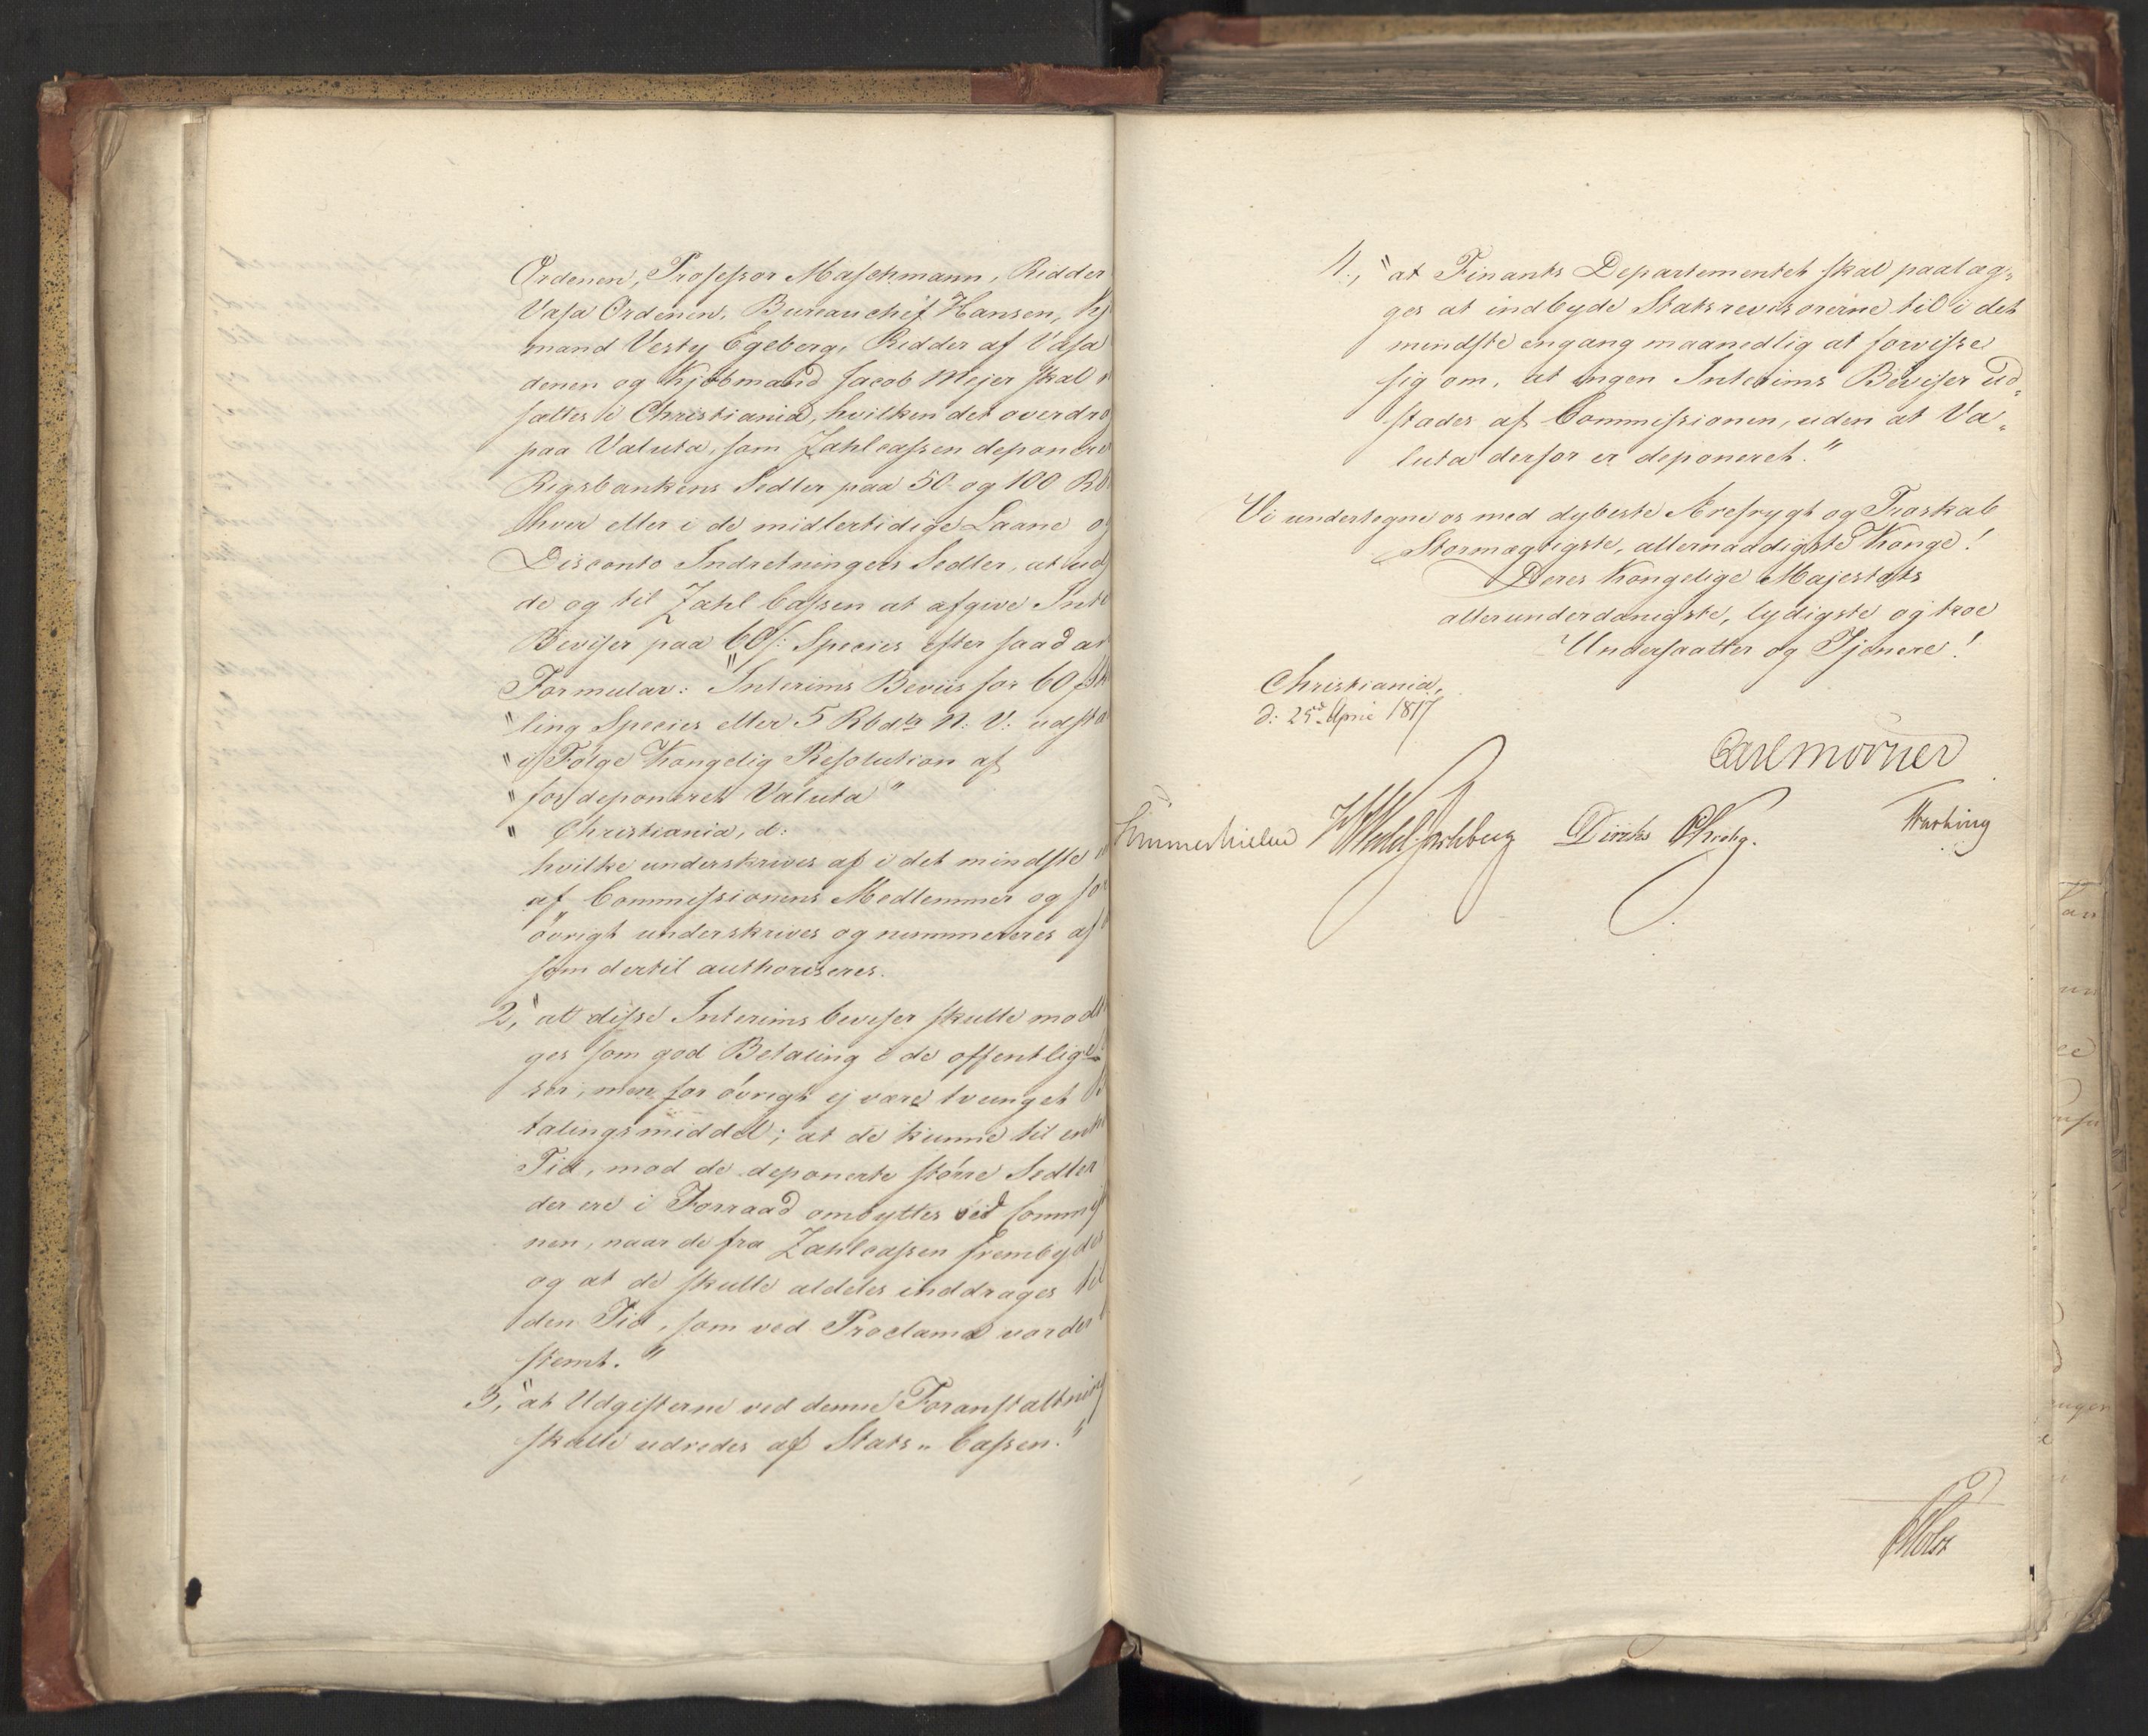 Ordenen, Professor Maschmann, Ridder
Vasa Ordenen, Bureauchef Hansen, Kj
mand Vesty Egeberg, Ridder af Vasa
denen og Kjöbmand Jacob Mejer skal
sættes i Christiania, hvilken det overdra
paa Valuta, som Zahlcassen deponere
Rigsbankens Sedler paa 50 og 100 Rb
hver eller i de midlertidige Laane og
Disconto Indretningers Sedler, at ud
de og til Zahl Cassen at afgive Inte
Beviser paa 60 s: Species efter saadan
Formular: "Interims Beviis for 60 Sk
"ling Species eller 5 Rbdlr N: V: udsta
"i Følge Kongelig Resolution af
"for deponeret Valuta"
" Christiania, d:
hvilke underskrives af i det mindste
af Commissionens Medlemmer og for
övrigt underskrives og nummereres af
som dertil authoriseres.
2, "at disse Interimsbeviser skulle modt
ges som god Betaling i de offentlige
ser, men for övrigt ej være tvunget B
talingsmiddel; at de kunne til enh
Tid, mod de deponerte större Sedler
der ere i Forraad ombyttes ved Commis
nen, naar de fra Zahlcassen frembydes
og at de skulle aldeles inddrages til
den Tid, som ved Proclama vorder
stemt."
3, "at Udgifterne ved denne Foranstaltning
skulle udredes af Stats-Cassen."
4, "at Finants Departementet skal paalæg-
ges at indbyde Statsrevisorerne til i det
mindste engang maanedlig at forvisse
sig om, at ingen Interims Beviser ud-
stædes af Commissionen, uden at Va-
luta derfor er deponeret."
Vi undertegne os med dybeste Ærefrygt og Troskab
Stormægtigste, allernaadigste Konge!
Deres Kongelige Majestæts
allerunderdanigste, lydigste og troe
Undersaatter og Tjenere!
Christiania,
d: 25de April 1817
Carl Mörner
Sommerhielm Wedel Jarlsberg Diriks Krohg. Motzfeldt
Holst